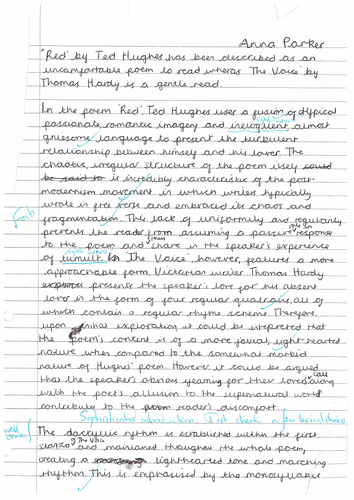 Anna Parker
'Red' by Ted Hughes, has been described as an
uncomfortable poem to read wheras 'The Voice' by
Thomas Hardy is a gentle read.
In the poem 'Red', Ted Hughes uses a fusion of atypical
passionate, romantic imagery and ineloquent, almost
gruesome language to present the turbulent
relationship between himself and his lover. The
chaotic, irregular structure of the poem itself could
be said to is incredibly characteristic of the post-
modernism movement in which writers typically
wrote in free verse and embraced its chaos and
Fab
fragmentation. This lack of uniformity and regularity
prevents the reader from assuming a passive role in response
to the poem and thus share in the speaker's experience
of tumult. In 'The Voice', however, features a more
approachable form. Victorian writer Thomas Hardy
explores presents the speaker's love for his absent
lover in the form of four regular quatrains, all of
which contain a regular rhyme scheme. Therefore,
upon initial exploration it could be interpreted that
the poem's content is of a more jovial, light-hearted
nature when compared to the somewhat morbid
nature of Hughes' poem. However, it could be argued
that the speaker's obvious yearning for their loved along
with the poet's allusion to the supernatural world
contribute to the poem reader's discomfort.
Sophisticated introduction. Just check a few lexical choices
well done!
The dactylic rhythm is established within the first
stanza of 'The Voice' and maintained throughout the whole poem,
creating a lighthearted tone and marching
rhythm. This is emphasised by the monosyllabic